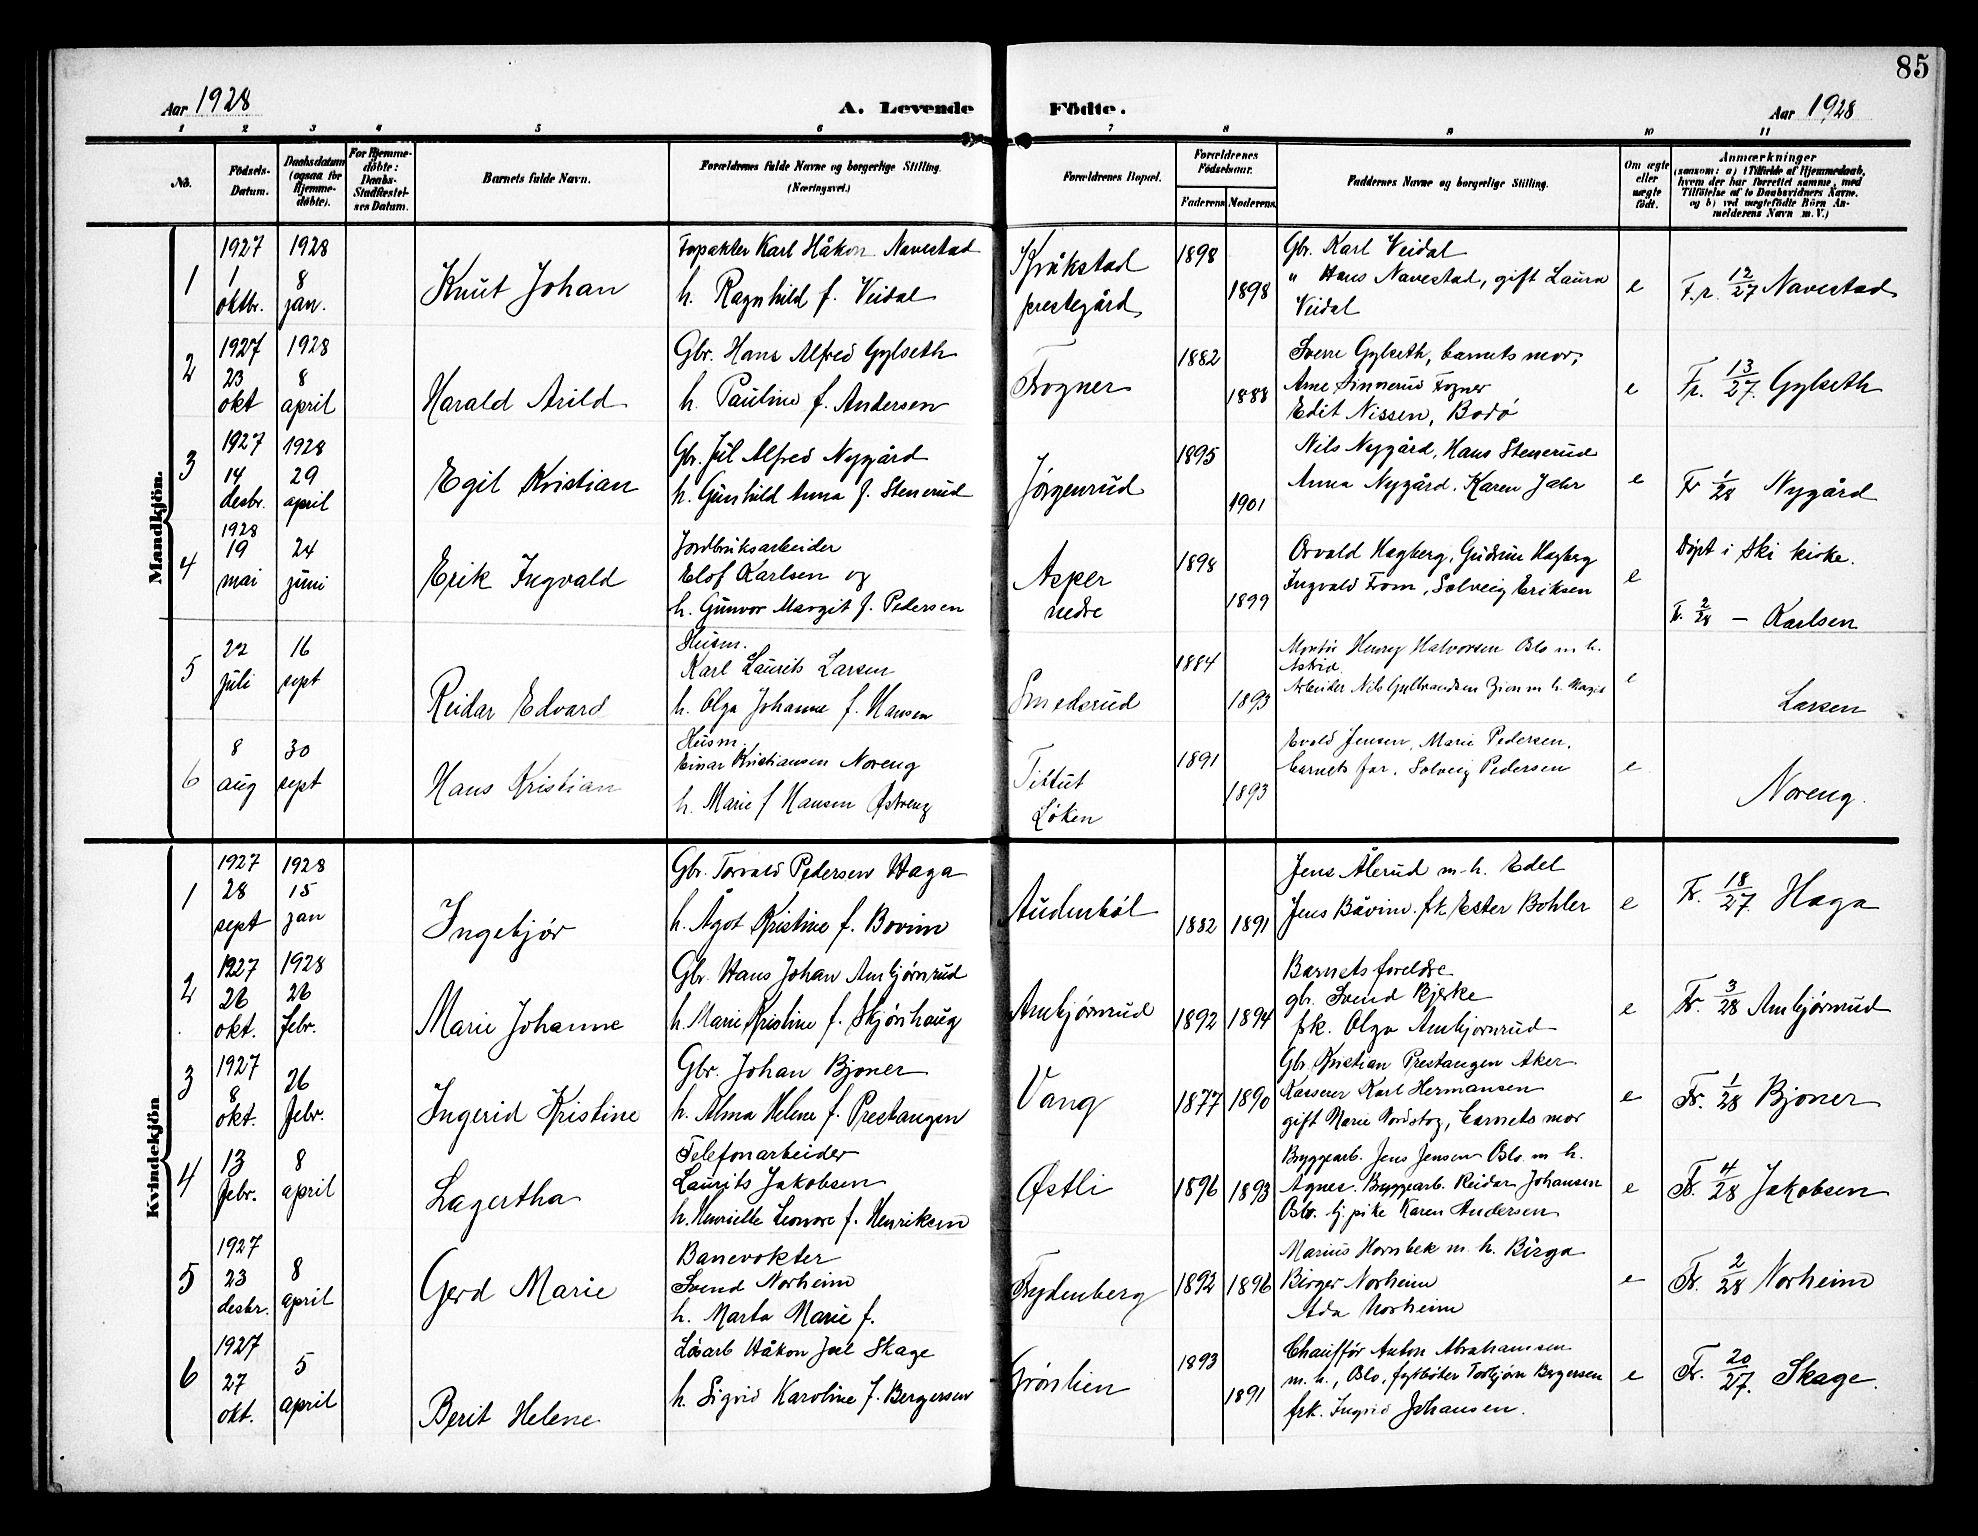 85
Aar 1928
A. Levende Födte.
Aar 1928
1 2 3 4 5 6 7 8 9 10 11
No.
Födsels-
Datum.
Daabsdatum
(ogsaa for
Hjemme-
døbte).
For Hjemme-
døbte:
Daabs-
Stadfæstel-
ses Datum.
Barnets fulde Navn.
Forældrenes fulde Navne og borgerlige Stilling.
(Næringsvei.)
Forældrenes Bopæl.
Forældrenes
Födselsaar.
Faderens Moderens
Faddernes Navne og borgerlige Stilling.
Om ægte
eller
uægte
födt.
Anmærkninger
(saasom: a) i Tilfælde af Hjemmedaab,
hvem der har forrettet samme, med
Tilføielse af to Daabsvidners Navne,
og b) ved uægtefödte Börn An-
melderens Navn m. V.)
Mandkjön.
1
1927
1
oktbr.
1928
8
jan.
Knut Johan
Forpakter Karl Håkon Navestad
h. Ragnhild f. Veidal
Kråkstad
prestegård
1898
1898
Gbr. Karl Veidal
" Hans Navestad, gift Laura
Veidal
e
F.r. 12/27 Navestad
2
1927
23
okt
1928
8
april
Harald Arild
Gbr. Hans Alfred Gylseth
h. Pauline f. Andersen
Frogner
1882
1888
Sverre Gylseth, barnets mor,
Arne Sinnerud Frogner
Edit Nissen, Bodø
e
Fr. 13/27. Gylseth
3
1927
14
desbr.
1928
29
april
Egil Kristian
Gbr. Jul Alfred Nygård
h. Gunhild Anna f. Stenerud
Jørgenrud
1895
1901
Nils Nygård, Hans Stenerud
Anna Nygård. Karen Jahr
e
Fr 1/28 Nygård
4
1928
19
mai
24
juni
Erik Ingvald
Jordbruksarbeider
Elof Karlsen og
h. Gunvor Margit f. Pedersen
Asper
nedre
1898
1899
Osvald Hagberg, Gudrun Hagberg
Ingvald From, Solveig Eriksen
e
Døpt i Ski kirke.
Fr. 2/28 — Karlsen
5
22
juli
16
sept
Reidar Edvard
Husm.
Karl Laurits Larsen
h. Olga Johanne f. Hansen
Smedsrud
1884
1893
Montør Henry Halvorsen Oslo m. h.
Astrid
Arbeider Nils Gulbrandsen Zion m. h. Margit
e
Larsen
6
8
aug
30
sept
Hans Kristian
Husm.
Einar Kristiansen Noreng
h. Marie f Hansen Østreng
Tittut
Løken
1891
1893
Evald Jensen, Marie Pedersen,
barnets far, Solveig Pedersen
e
Noreng.
Kvindekjön
1
1927
28
sept
1928
15
jan
Ingebjør
Gbr. Torvald Pedersen Haga
h. Ågot Kristine f. Bovim
Audenböl
1882 1891
Jens Ålerud m. h. Edel
Jens Båvim. frk Ester Bohler
e
Fr. 18/27. Haga
2
1927
26
okt.
1928
26
febr.
Marie Johanne
Gbr. Hans Johan Ambjørnrud
h. Marie Kristine f. Skjønhaug
Ambjørnrud
1892 1894
Barnets foreldre
gbr. Svend Bjerke
frk. Olga Ambjørnrud
e
Fr. 3/28 Ambjørnrud
3
1927
8
okt.
26
febr.
Ingerid Kristine
Gbr. Johan Bjoner
h. Alma Helene f. Prestangen
Vang
1877 1890
Gbr. Kristian Prestangen Aker
Kasserer Karl Hermansen
gift Marie Nordstog, barnets mor
e
Fr. 1/28 Bjoner
4
13
febr.
8
april
Lagertha
Telefonarbeider
Laurits Jakobsen
h. Henriette Leonore f. Henriksen
Østli
1896 1893
Bryggearb. Jens Jensen Oslo. m. h.
Agnes. Bryggearb. Reidar Johansen
Oslo. tj.pike Karen Andersen
e
Fr. 4/28 Jakobsen
5
1927
23
desbr.
8
april
Gerd Marie
Banevokter
Svend Norheim
h. Marta Marie f.
Frydenberg
1892 1896
Marius Hornbek m. h. Birga
Birger Norheim
Ada Norheim
e
Fr. 2/28 Norheim
6
1927
27
okt.
5
april
Berit Helene
Løsarb Håkon Joel Skage
h. Sigrid Karoline f. Bergersen
Grönlien
1893
1891
Chauffør Anton Abrahamsen
m. h., Oslo, fyrbøter Torbjørn Bergersen
frk. Ingrid Johansen.
e
Fr. 20/27. Skage.